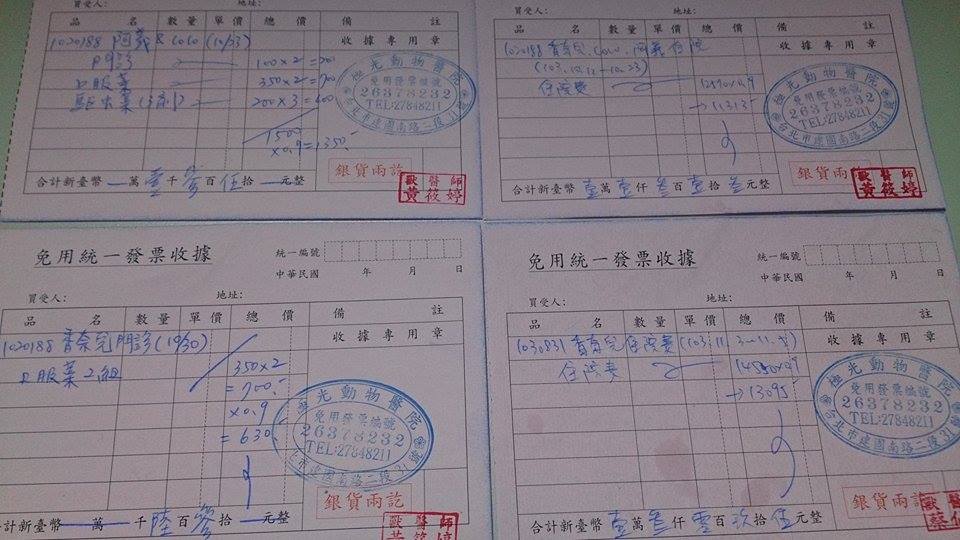 買受人： 地址：
品 名 數量 單價 總 價 備 註
1020188 阿義 & CoCo (10/23) 收據專用章
門診 100×2=200
口服藥 350×2=700
驅虫藥 200×3=600
1500
×0.9=1350.
極光動物醫院
免用發票編號
26378232
TEL:27848211
台北市建國南路二段31號
銀貨兩訖
合計新臺幣 萬 壹 千 參 百 伍 拾 元整
歐醫師
黃筱婷
買受人： 地址：
品 名 數量 單價 總 價 備 註
1020188 香奈兒, CoCo, 阿義住院 收據專用章
(103.10.12-10.23)
住院費
→11313
極光動物醫院
免用發票編號
26378232
TEL:27848211
台北市建國南路二段31號
銀貨兩訖
合計新臺幣 壹 萬 壹 仟 參 百 壹 拾 參 元整
歐醫師
黃筱婷
免用統一發票收據
統一編號
中華民國 年 月 日
買受人： 地址：
品 名 數量 單價 總 價 備 註
1020188 香奈兒門診(10/30) 收據專用章
口服藥2組 350×2
=700.-
×0.9
=630.
極光動物醫院
免用發票編號
26378232
TEL:27848211
台北市建國南路二段31號
銀貨兩訖
合計新臺幣 萬 千 陸 百 參 拾 元整
歐醫師
黃筱婷
免用統一發票收據
統一編號
中華民國 年 月 日
買受人： 地址：
品 名 數量 單價 總 價 備 註
1030831 香奈兒住院費(103.11.3-11. 收據專用章
住院費 14550×0.9
→13095
極光動物醫院
免用發票編號
26378232
TEL:27848211
台北市建國南路二段31號
銀貨兩訖
合計新臺幣 壹 萬 參 仟 零 百 玖 拾 伍 元整
歐醫
蔡